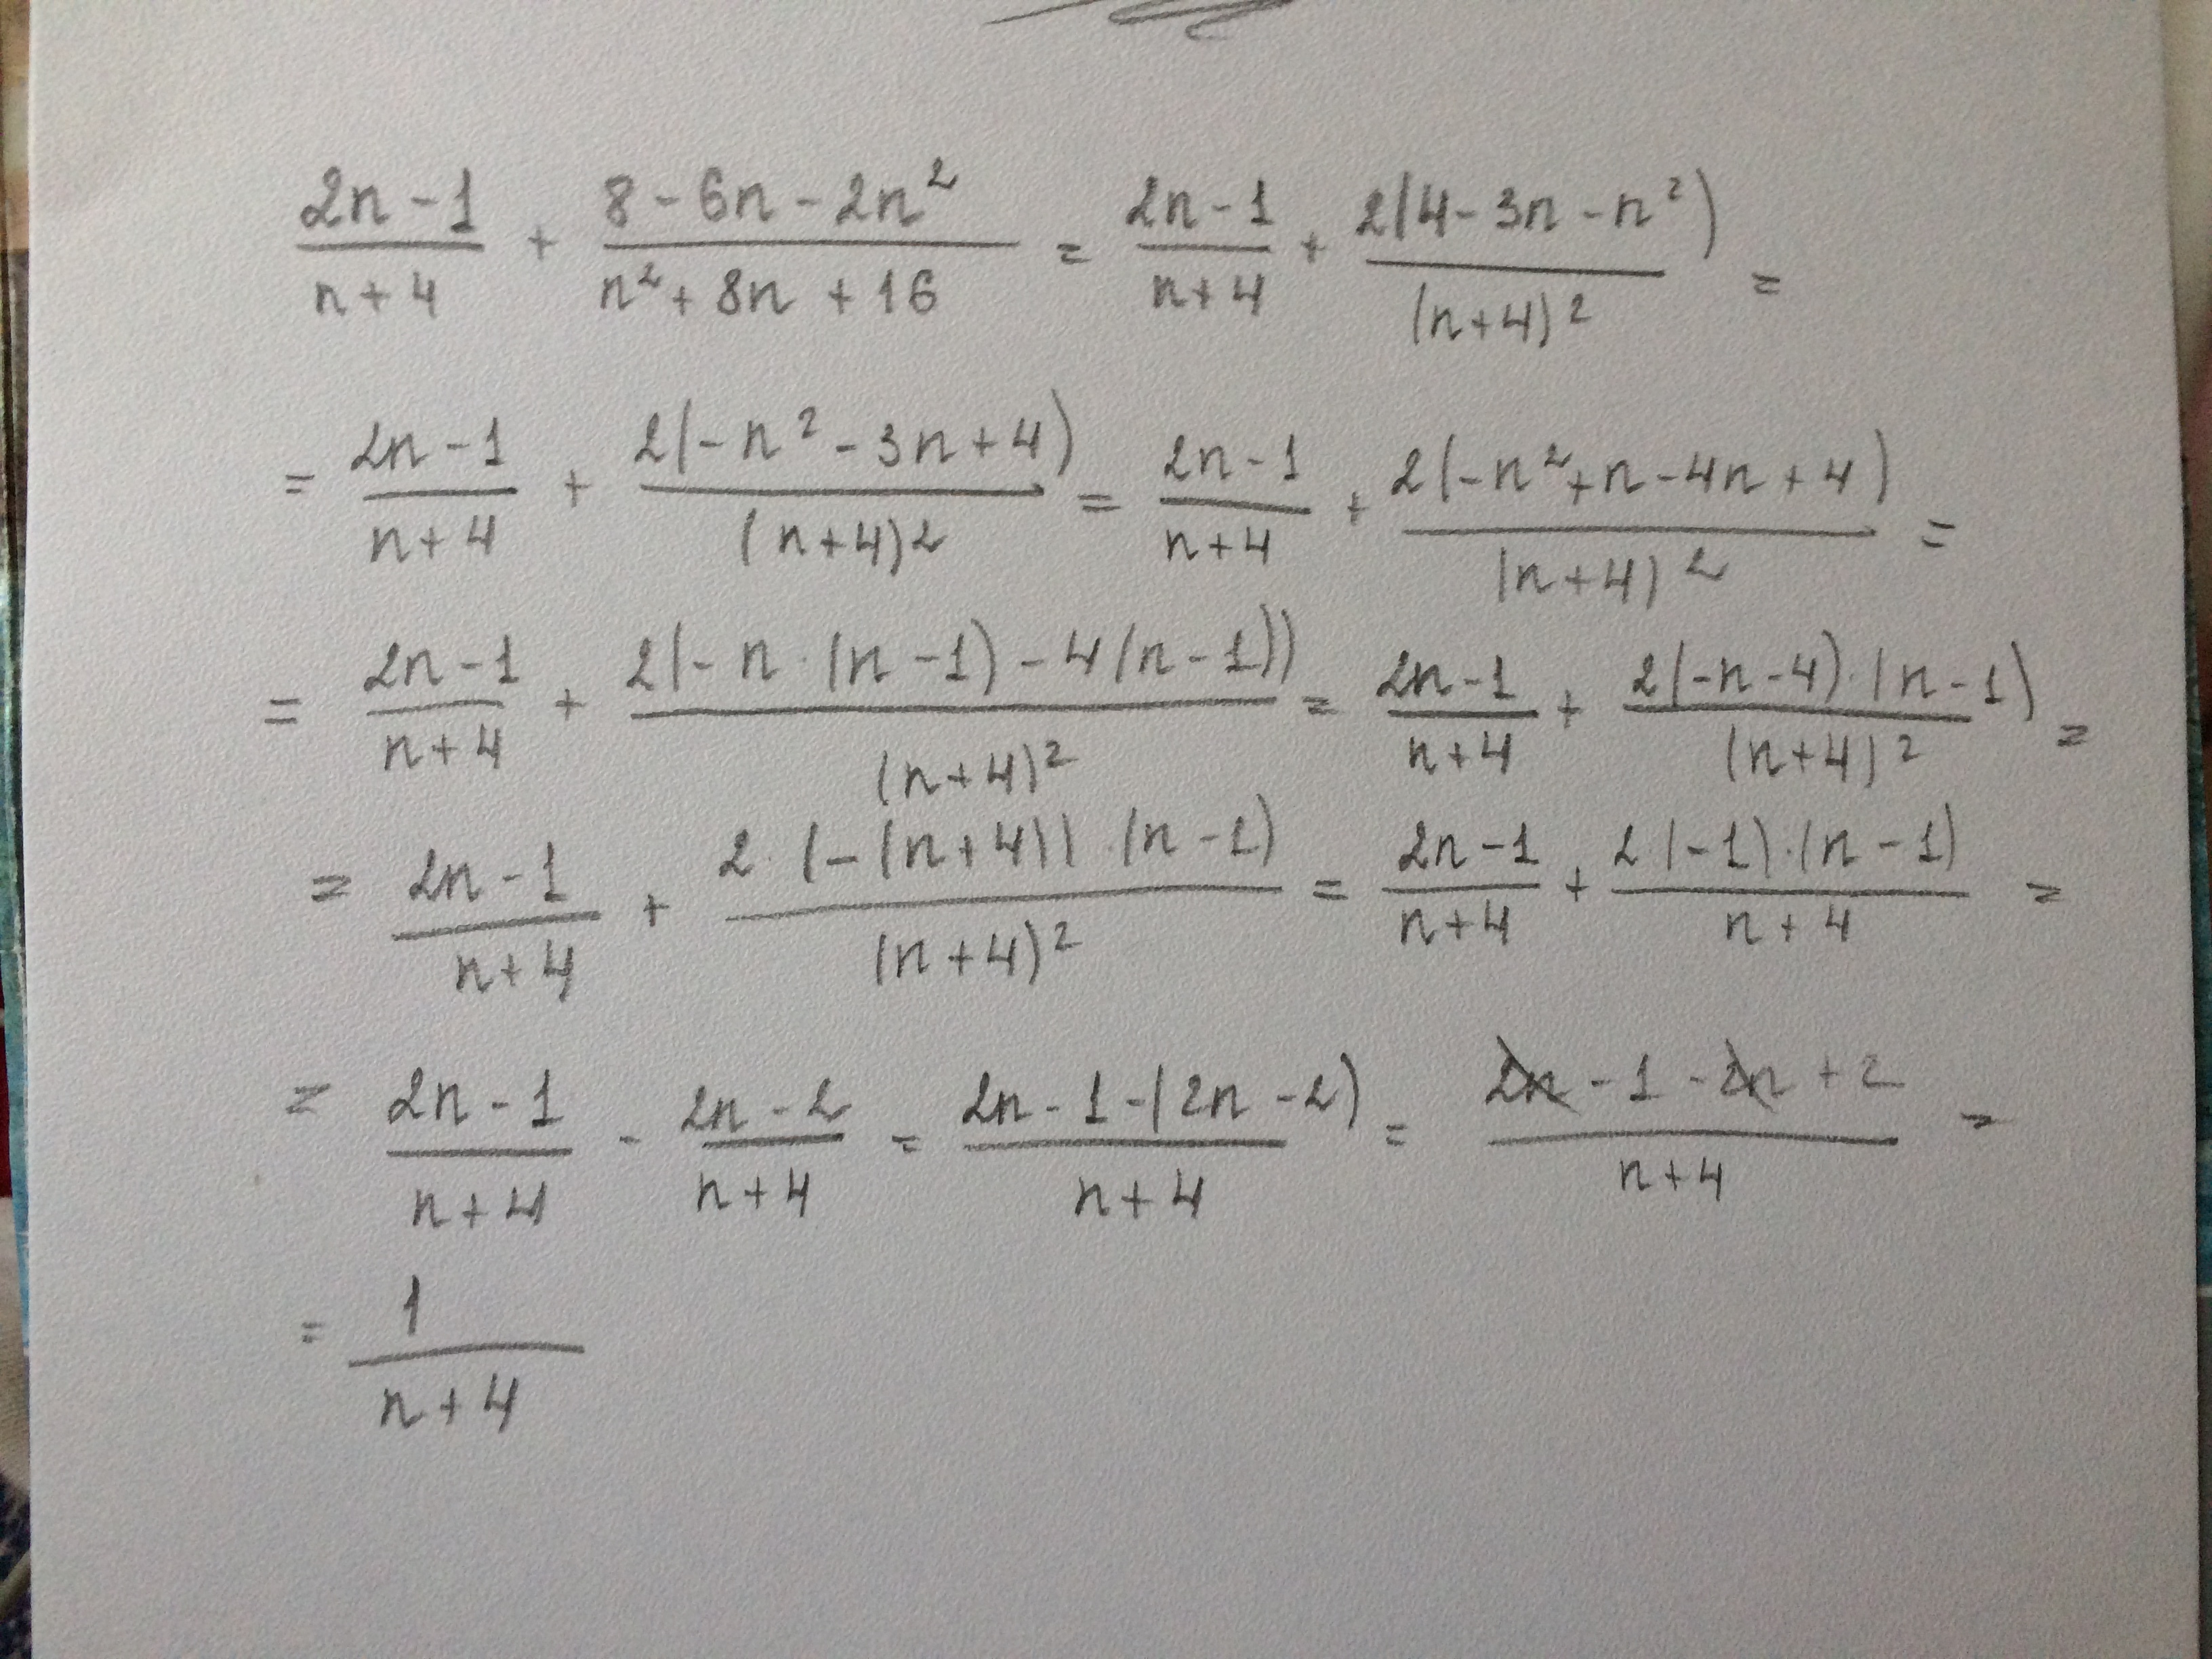 (2n - 1)/(n + 4) + (8 - 6n - 2n²)/(n² + 8n + 16) = (2n - 1)/(n + 4) + 2(4 - 3n - n²)/(n + 4)² =
= (2n - 1)/(n + 4) + 2(-n² - 3n + 4)/(n + 4)² = (2n - 1)/(n + 4) + 2(-n² + n - 4n + 4)/(n + 4)² =
= (2n - 1)/(n + 4) + 2(-n · (n - 1) - 4(n - 1))/(n + 4)² = (2n - 1)/(n + 4) + 2(-n - 4) · (n - 1)/(n + 4)² =
= (2n - 1)/(n + 4) + 2 · (-(n + 4)) · (n - 1)/(n + 4)² = (2n - 1)/(n + 4) + 2 · (-1) · (n - 1)/(n + 4) =
= (2n - 1)/(n + 4) - (2n - 2)/(n + 4) = (2n - 1 - (2n - 2))/(n + 4) = (2n - 1 - 2n + 2)/(n + 4) =
= 1/(n + 4)